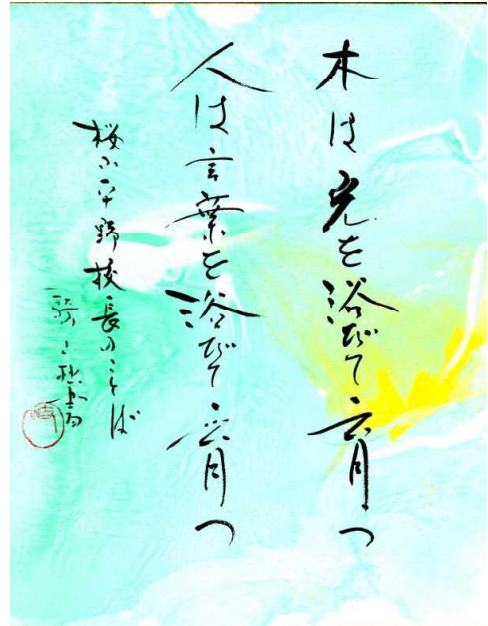 木は光を浴びて育つ
人は言葉を浴びて育つ
桜小平野校長のことば